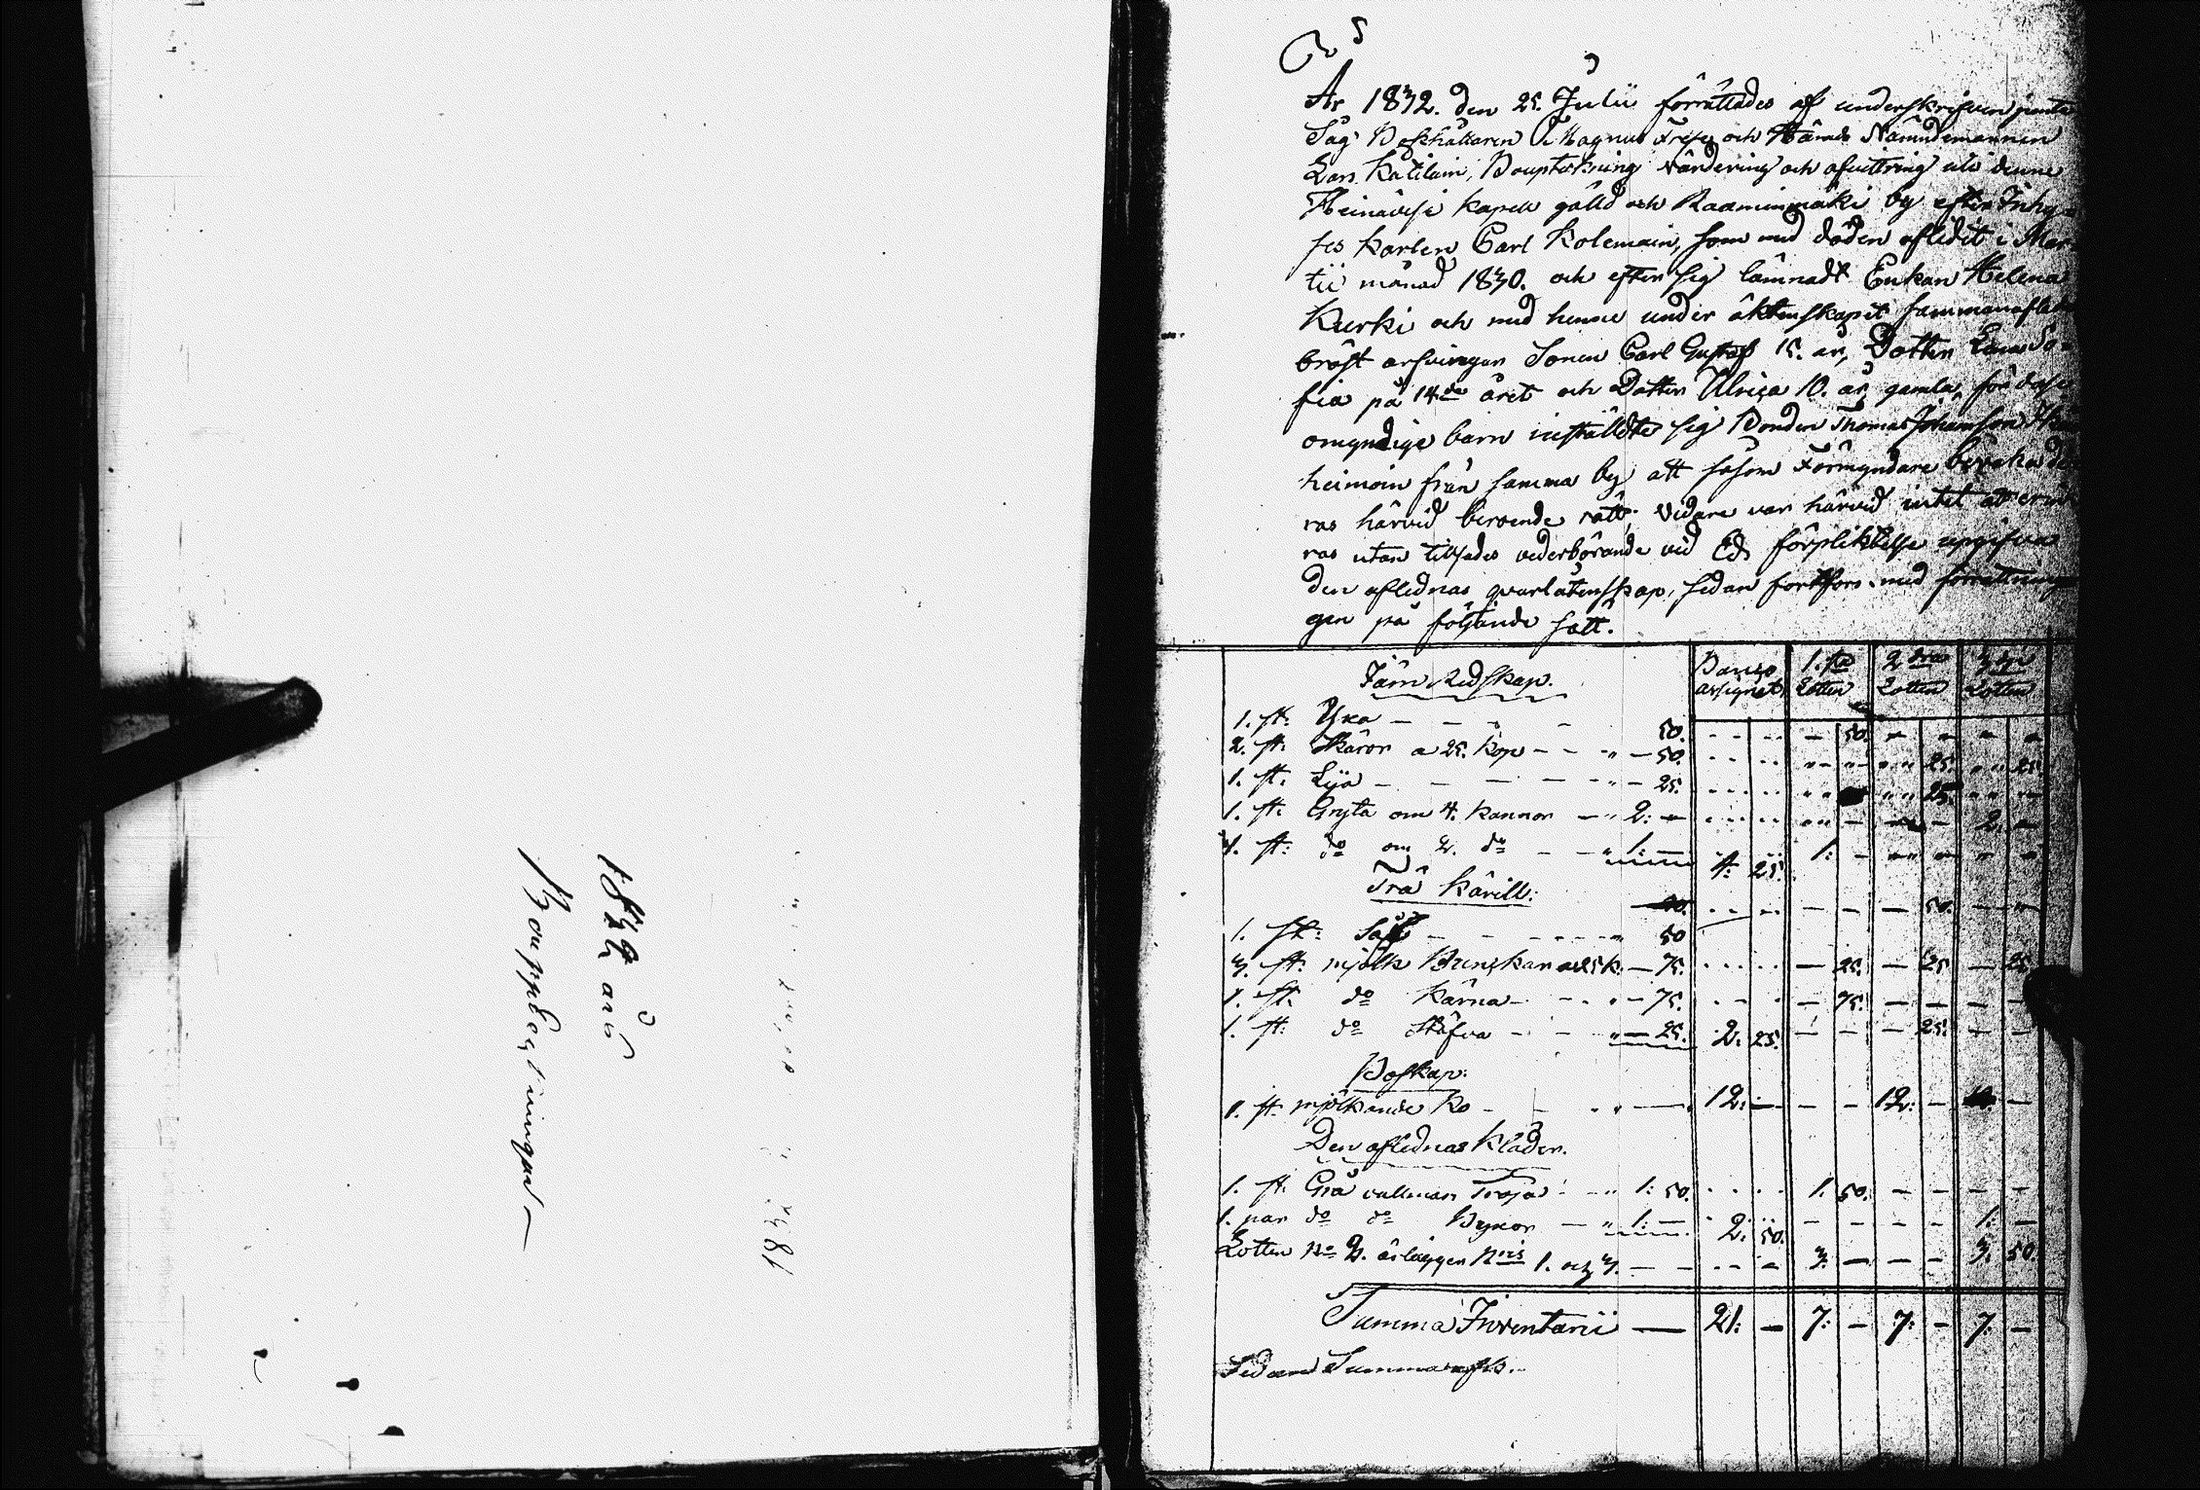 1832 års
Boupptekningar
År 1832. den 25. Julii förrättades af underskrifven jemte
Såg Bokhållaren Magnus och Härads Nämndemannen
Lars Katilain, Bouptekning Värdering och afvittring uti denne
Heinävesi kapell gälld och Raaminmäki by efter Inhy-
ses karlen Carl Kolemain, som med döden aflidit i Mar-
tii månad 1830. och efter sig lämnadt Enkan Helena
Kurki och med henne under äktenskapet sammanaflat
bröst arfvingar Sonen Carl Gustaf 15. år, Dottren So-
fia på 14de året och Dottren Ulrica 10. år gamla, för desse
omyndige barn inställdte sig Bonden Thomas Johansson
heimoin från samma by att såsom Förmyndare bevaka de-
ras härvid beroende rätt; Vidare var härvid intet att erin-
ras utan tillsades vederbörande vid Eds förpliktelse uppgifva
den aflednas qvarlåtenskap, sedan fortfors med förrättnin-
gen på följande sätt.
Järn Redskap. 1.sta Lotten 2dra Lotten 3dje Lotten
1. st: Yxa — 50. 50.
2. st: Skäror a 25. kop — 50. 25. 25
1. st. Lija — 25. 25.
1. st. Gryta om 4. kannor — 2: — 2. —
1. st: do om 2. do — 1: — 4. 25. 1: —
Trä kärill:
1. st: Så — 50 50.
3. st: mjölk a 25 k. — 75. 25. 25 25
1. st. do kärna — 75. 75.
1. st: do — 25. 2. 25. 25.
Boskap:
1. st. mjölkande ko — 12: — 12: —
Den aflednas kläder.
1. st. Grå vallmars Tröja — 1: 50. 1. 50.
1. par do do Byxor — 1: — 2. 50. 1: —
Lotten No 2. ärlägger Nris 1. och 3. — 3. — 3. 50.
Summa Inventarii — 21: — 7: — 7: — 7: —